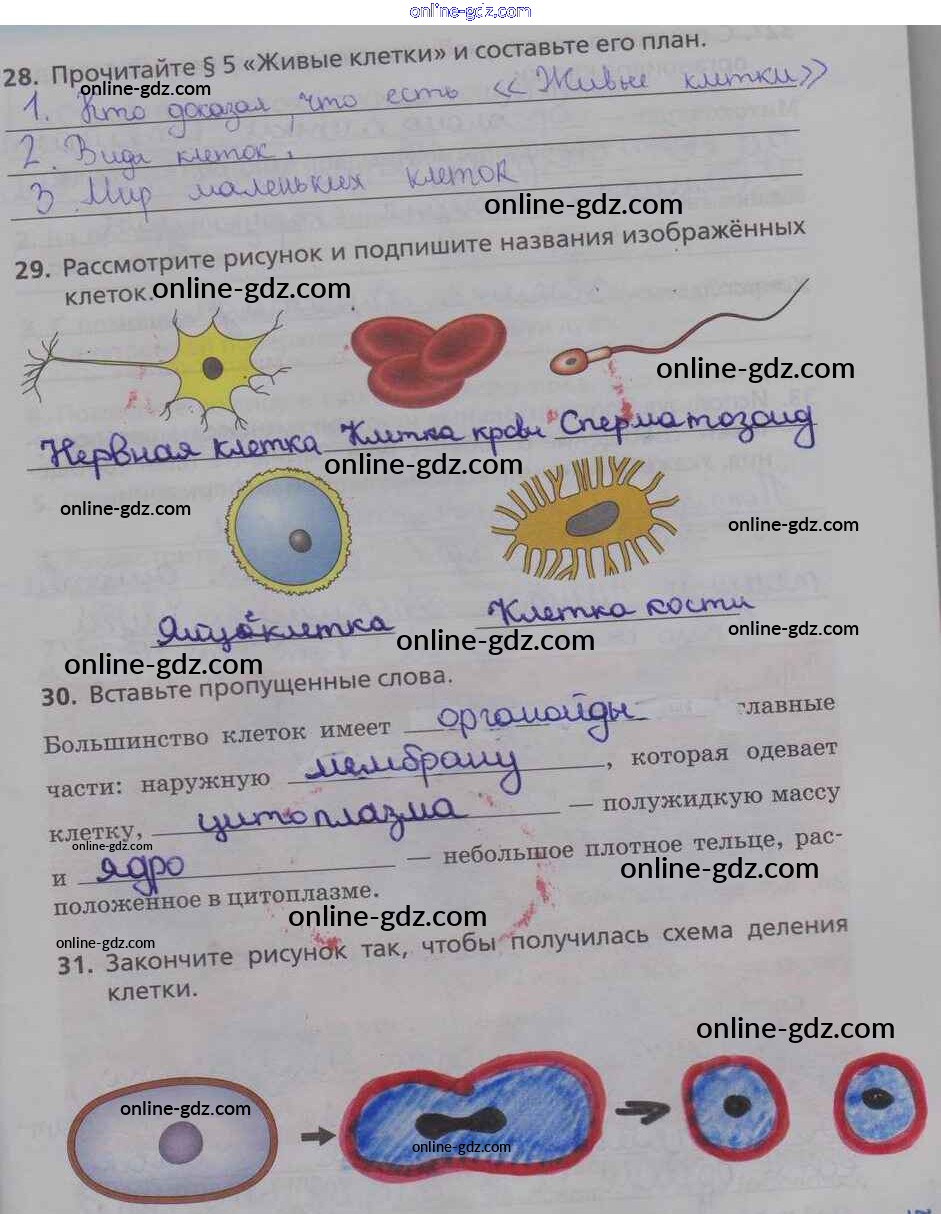 online-gdz.com
28. Прочитайте § 5 «Живые клетки» и составьте его план.
online-gdz.com
1. Кто доказал, что есть «Живые клетки»
2. Виды клеток.
3 Мир маленьких клеток
online-gdz.com
29. Рассмотрите рисунок и подпишите названия изображённых
клеток.
online-gdz.com
online-gdz.com
Нервная клетка Клетка крови Сперматозоид
online-gdz.com
online-gdz.com
online-gdz.com
Яйцеклетка Клетка кости
online-gdz.com
online-gdz.com
online-gdz.com
30. Вставьте пропущенные слова.
Большинство клеток имеет органойды главные
части: наружную мембрану, которая одевает
клетку, цитоплазма — полужидкую массу
online-gdz.com
и ядро — небольшое плотное тельце, рас-
online-gdz.com
положенное в цитоплазме.
online-gdz.com
online-gdz.com
31. Закончите рисунок так, чтобы получилась схема деления
клетки.
online-gdz.com
online-gdz.com
online-gdz.com